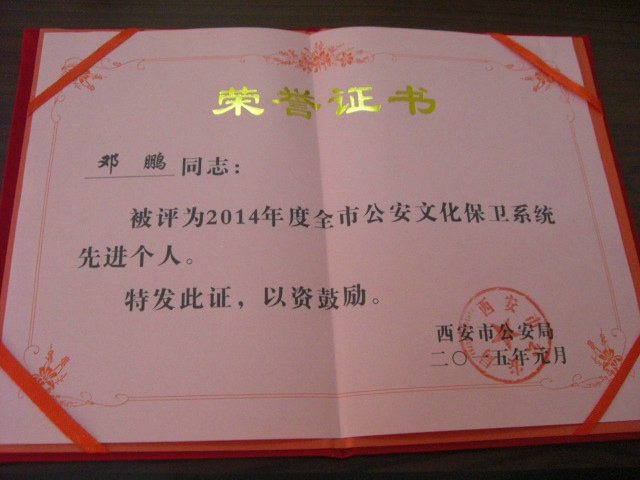 荣誉证书
邓 鹏 同志：
被评为2014年度全市公安文化保卫系统
先进个人。
特发此证，以资鼓励。
西安市公安局
二〇一五年元月